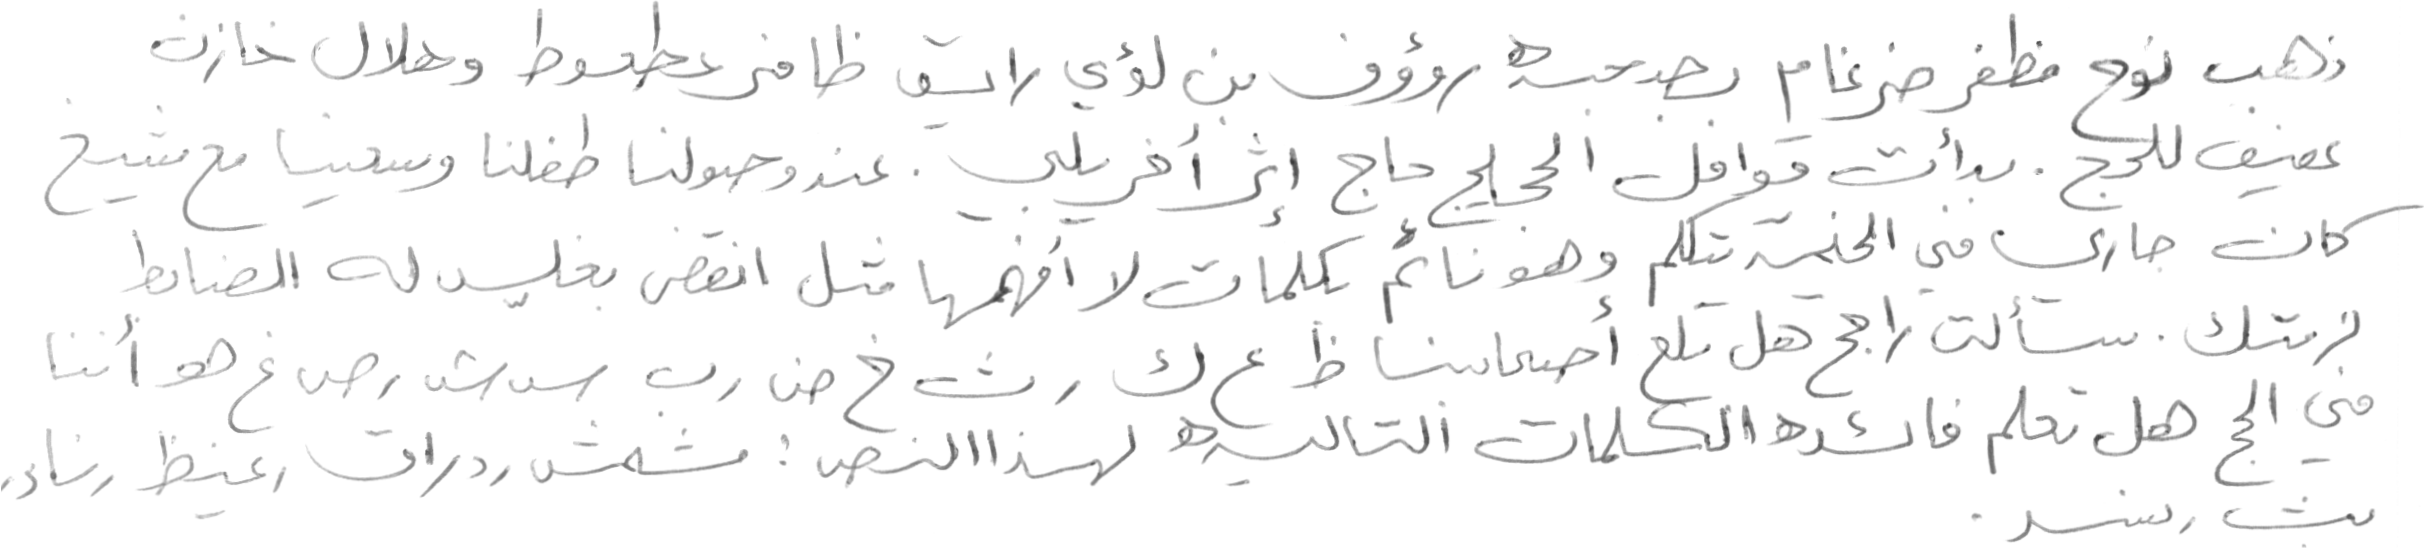 ذهب نوح مظفر ضرغام بصحبة رؤوف بن لؤي رايق ظافر عطعوط وهلال خازن
عفيف للحج . بدأت قوافل الحجيج حاج إثر أخر يلبي . عند وصولنا طفلنا وسعينا مع شيخ
كان جاري في الخيمة يتكلم وهو نائم بكلمات لا أفهمها مثل انقض بغليس له الضابط
لزمتك . سألت راجح هل بلغ أصحابنا ظ ع ك ث خ ض ب س ش ص غ هو أننا
في الحج هل تعلم فائدة الكلمات التالية لهذا النص : مشمش , دراق , غيظ , ناء ,
بث , سند .